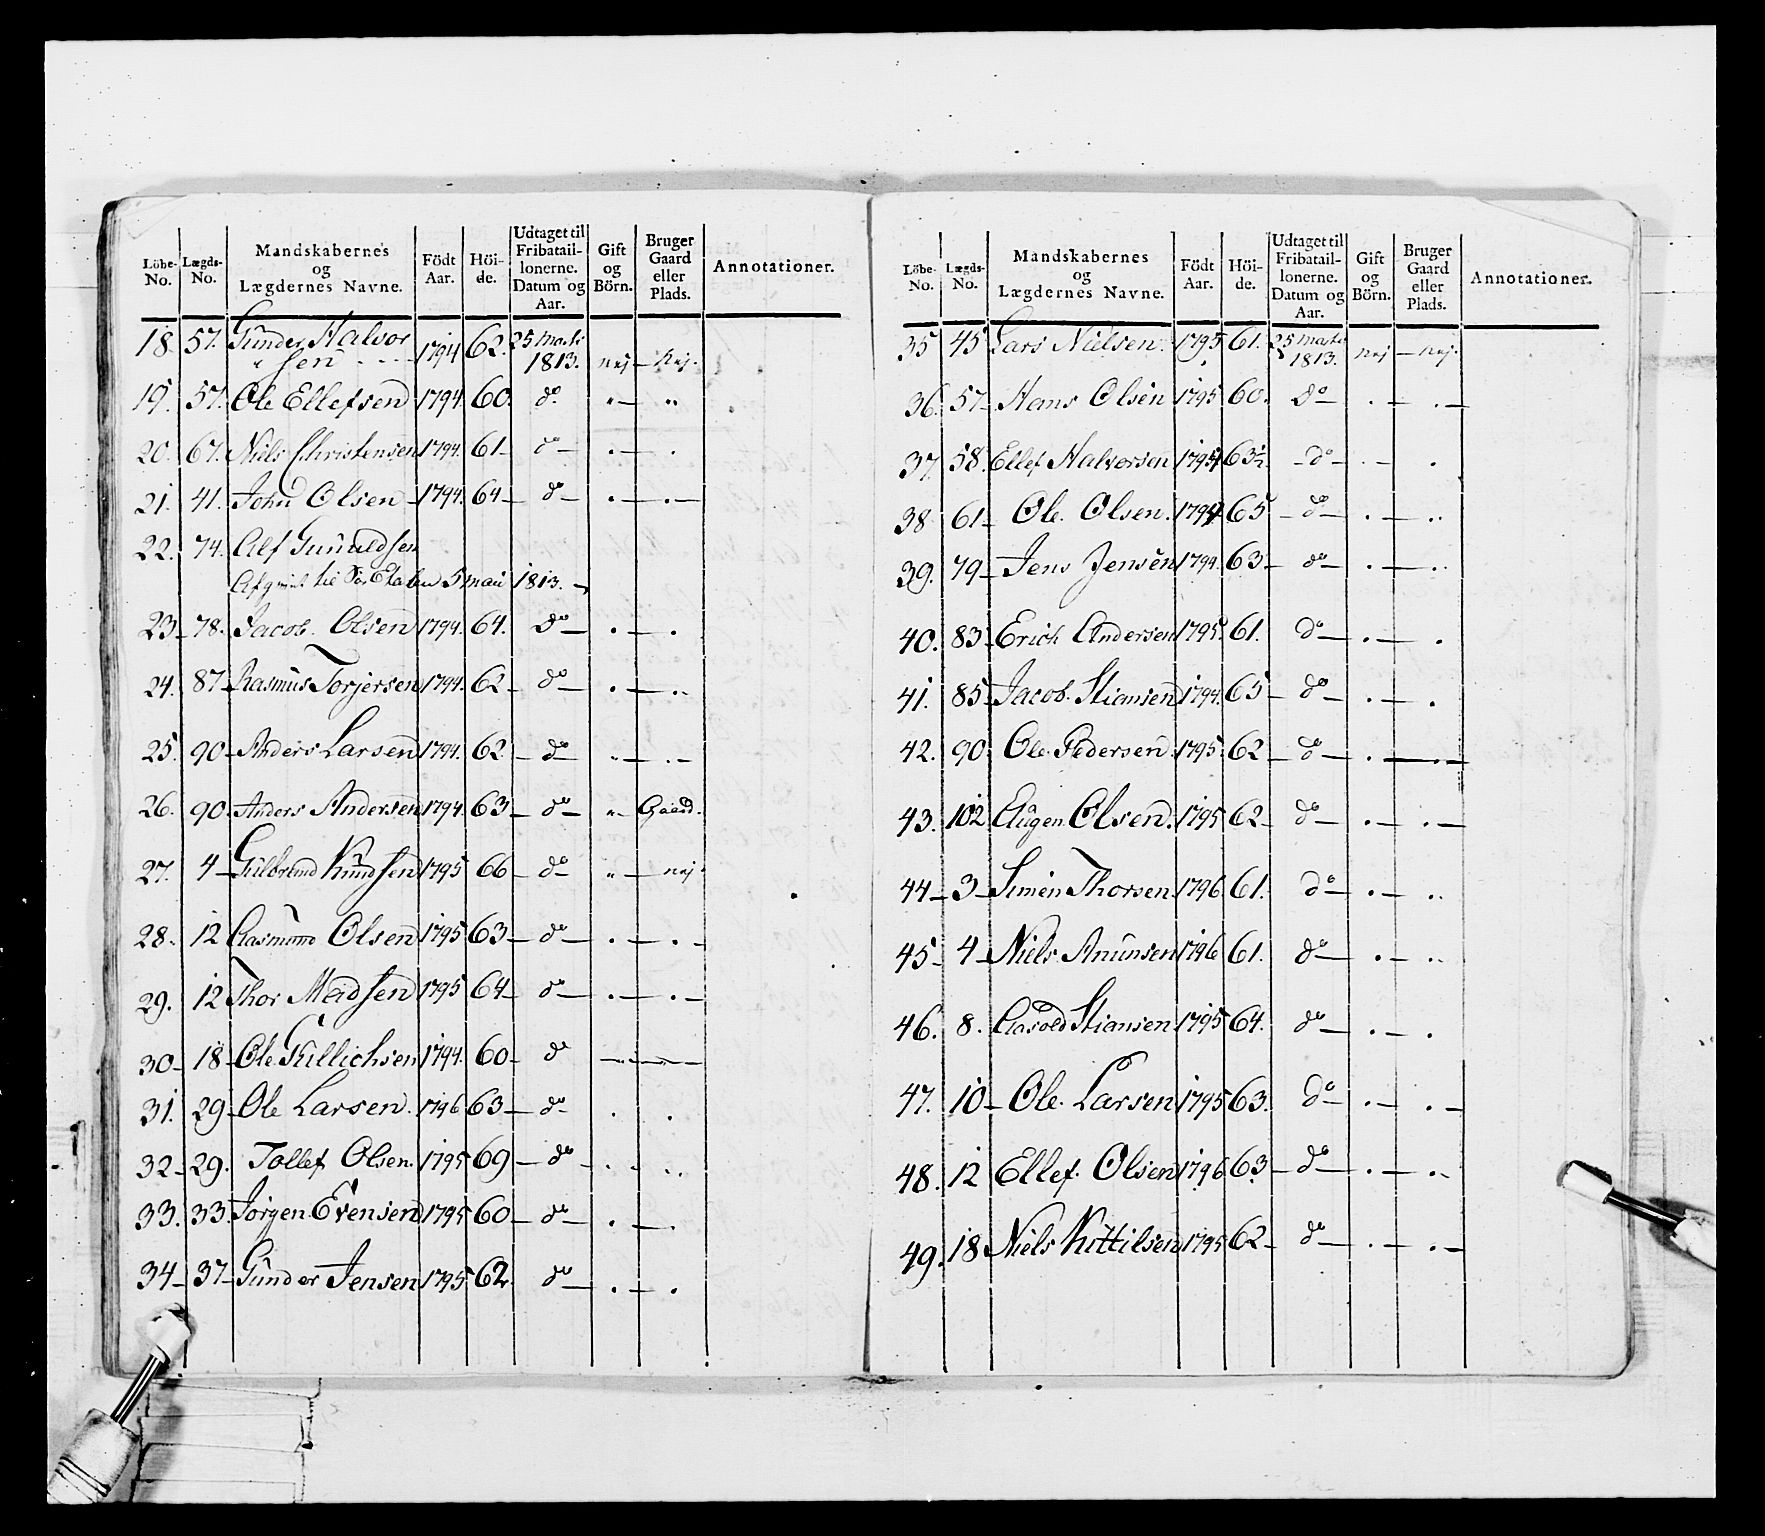 Löbe-No. Lægds-No. Mandskabernes og Lægdernes Navne. Födt Aar. Höi-de. Udtaget til Fribatail-lonerne. Datum og Aar. Gift og Börn. Bruger Gaard eller Plads. Annotationer.
18. 57. Gunder Halvor 1794 62. 25 Marts
" sen - - - 1813. nej — Nej.
19. 57. Ole Ellefsen 1794. 60. do "— "
20. 67. Niels Christensen 1794. 61— do— .— .
21. 41. John Olsen— 1794. 64— do— .— .—
22. 74. Alf Gunuldsen
til Söe Etaten 5 maii 1813. —
23— 78. Jacob. Olsen 1794. 64. do— .— .
24. 87— Rasmus Torjersen 1794. 62— do— .— ..
25. 90— Anders Larsen 1794. 62— do— "— .—
26. 90. Anders Andersen 1794. 63— do— "— Gaard.
27. 4— Gulbrand Knudsen 1795 66— do— "— nej.
28. 12 Aasmund Olsen 1795 63— do— .— .—
29. 12 Thor Madsen 1795 64— do— .— .—
30— 18— Ole Killichsen 1794. 60— do —"— "—
31. 29— Ole Larsen. 1796 63— do— . .
32— 29. Tollef Olsen. 1795 69— do— .— ..
33. 33. Jörgen Evensen 1795 60— do— .— .
34— 37— Gunder Jensen 1795 62. do— .— .
Löbe-No. Lægds-No. Mandskabernes og Lægdernes Navne. Födt Aar. Höi-de. Udtaget til Fribatail-lonerne. Datum og Aar. Gift og Börn. Bruger Gaard eller Plads. Annotationer.
35 45 Lars Nielsen. 1795 61. 25 Marts
1813. nej — nej.
36. 57— Hans Olsen 1795 60. do— .— .—
37. 58. Ellef Halvorsen 1794 63½ —do— .— .
38 61— Ole. Olsen. 1794 65 —do— .— ..
39. 79— Jens Jensen 1794. 63— do— .— ..
40. 83— Erich Andersen 1795. 61. do— .— .
41. 85— Jacob. Stiansen 1794. 65— do— .— .
42. 90. Ole. Pedersen 1795. 62— do— .— .—
43. 102 Augen Olsen. 1795 62— do— .— .—
44— 3— Simen Thorsen. 1796. 61. do— .— ..
45— 4— Niels Anunsen 1796 61. do— .— ..
46. 8. Aasold Stiansen 1795 64. do— .— .
47. 10— Ole. Larsen 1795 63. do— .— .—
48. 12 Ellef. Olsen 1796 63— do— .— ..
49. 18 Niels Kittilsen 1795 62— do— .— .—